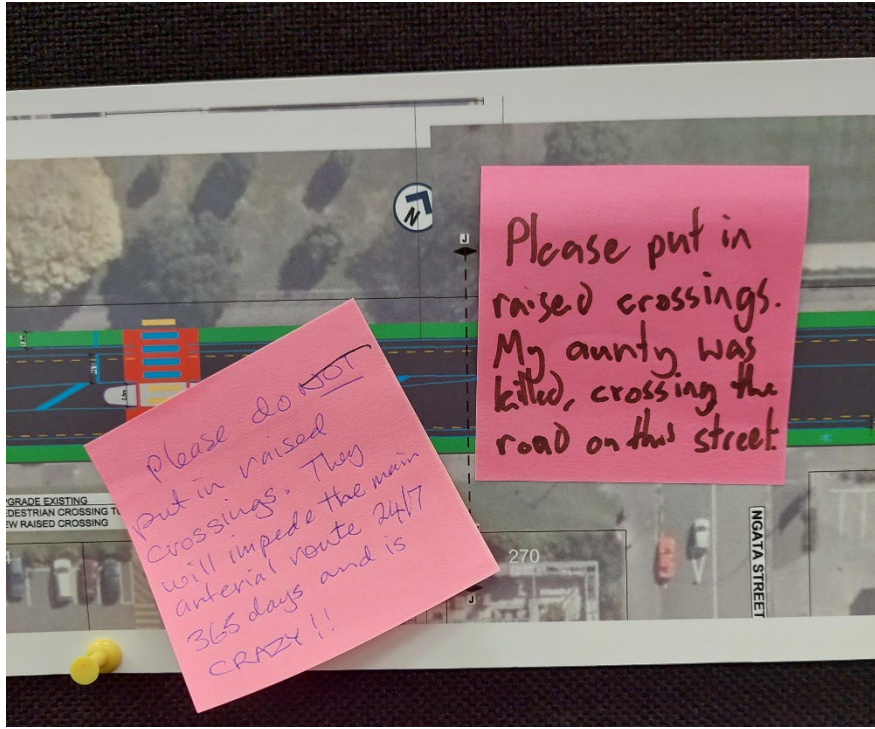 N
J
Please put in
raised crossings.
My aunty was
killed, crossing the
road on this street.
please do NOT
put in raised
crossings. They
will impede the main
arterial route 24/7
365 days and is
CRAZY!!
PGRADE EXISTING
EDESTRIAN CROSSING TO
EW RAISED CROSSING
270
J
NGATA STREET